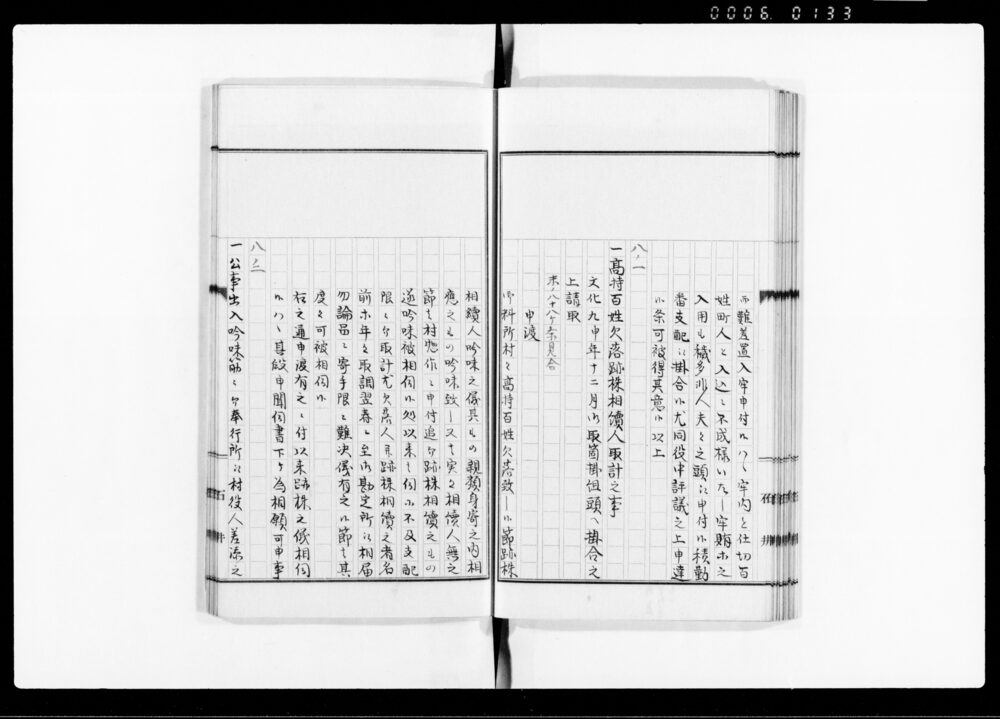 0006. 0133
而難差置入牢申付候ハヽ牢内を仕切百
姓町人と入込ニ不成様いたし牢賄等之
入用も穢多非人夫々之頭江申付候積勤
番支配江掛合候尤同役中評議之上申達
候条可被得其意候以上
八ノ一
一高持百姓欠落跡株相續人取計之事
文化九申年十二月御取箇掛組頭ヘ掛合之
上請取
末ノ八十八ケ条見合
申渡
御料所村々高持百姓欠落致し候節跡株
相續人吟味之儀其もの親類身寄之内相
應之もの吟味致し又者実々相續人無之
節者村惣作ニ申付追而跡株相續之もの
遂吟味被相伺候処以来者伺ニ不及支配
限ニ而取計尤欠落人并跡株相續之者名
前等年々取調翌春ニ至御勘定所江相届
勿論品ニ寄手限ニ難决儀有之候節者其
度々可被相伺候
右之通申渡有之ニ付以来跡株之儀相伺
候ハヽ其段申聞伺書下ケ為相願可申事
八ノ二
一公事出入吟味筋ニ而奉行所江村役人差添之